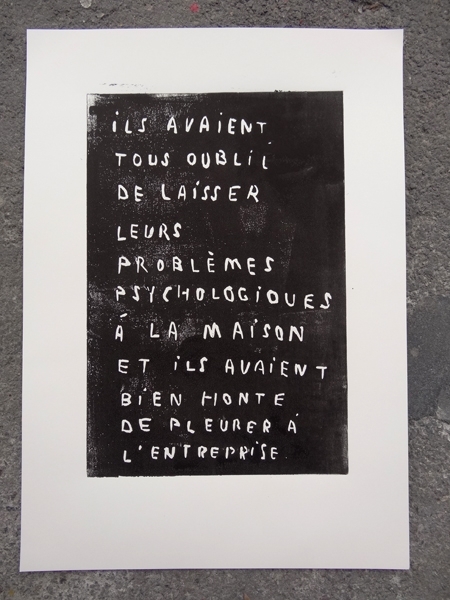 iLS AVAiENT
TOUS OUBLIÉ
DE LAiSSER
LEURS
PROBLÈMES
PSYCHOLOGiQUES
À LA MAiSON
ET iLS AVAiENT
BiEN HONTE
DE PLEURER À
L'ENTREPRiSE